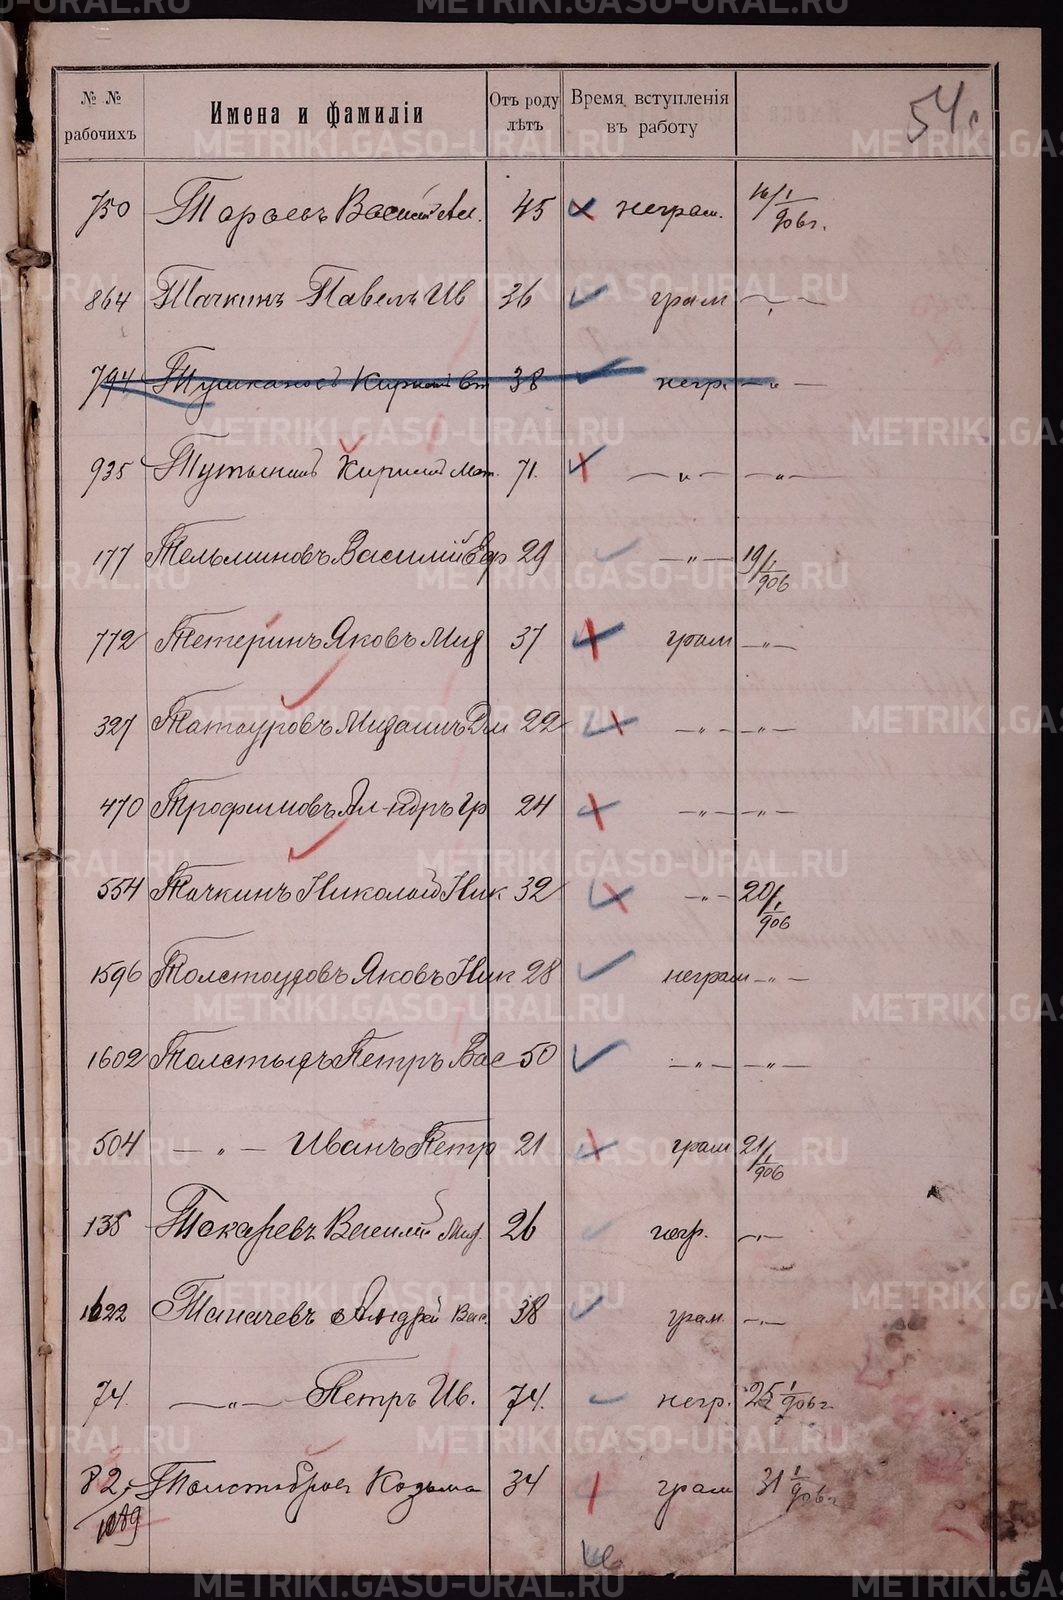 54
№ № рабочихъ Имена и фамиліи Отъ роду лѣтъ Время вступленія въ работу
750 45 неграм. 16/1 906 г.
864 Тачкинъ Павелъ Ив 36 грам — „ —
794 38 негр. — „ —
935 71. — „ — — „ —
177 Тельминовъ Василій Еф 29 — „ — 19/1 906
772 Тетеринъ Яковъ Мих 37 грам — „ —
327 Татауровъ Михаилъ Дм 22 — „ — — „ —
470 Трофимовъ Ал-ндръ Гр 24 — „ — — „ —
554 Тачкинъ Николай Ник 32 — „ — 20/1 906
1596 Толстоуховъ Яковъ Ник 28 неграм — „ —
1602 Толстыхъ Петръ Вас 50 — „ — — „ —
504 — „ — Иванъ Петр 21 грам 21/1 906
138 Токаревъ Василій Мих. 26 негр. — „ —
1622 Андрей Вас. 38 грам. — „ —
74. — „ — Петръ Ив. 74. негр. 25 1/906 г.
82. Козьма 34 грам 31 1/906 г.
METRIKI.GASO-URAL.RU